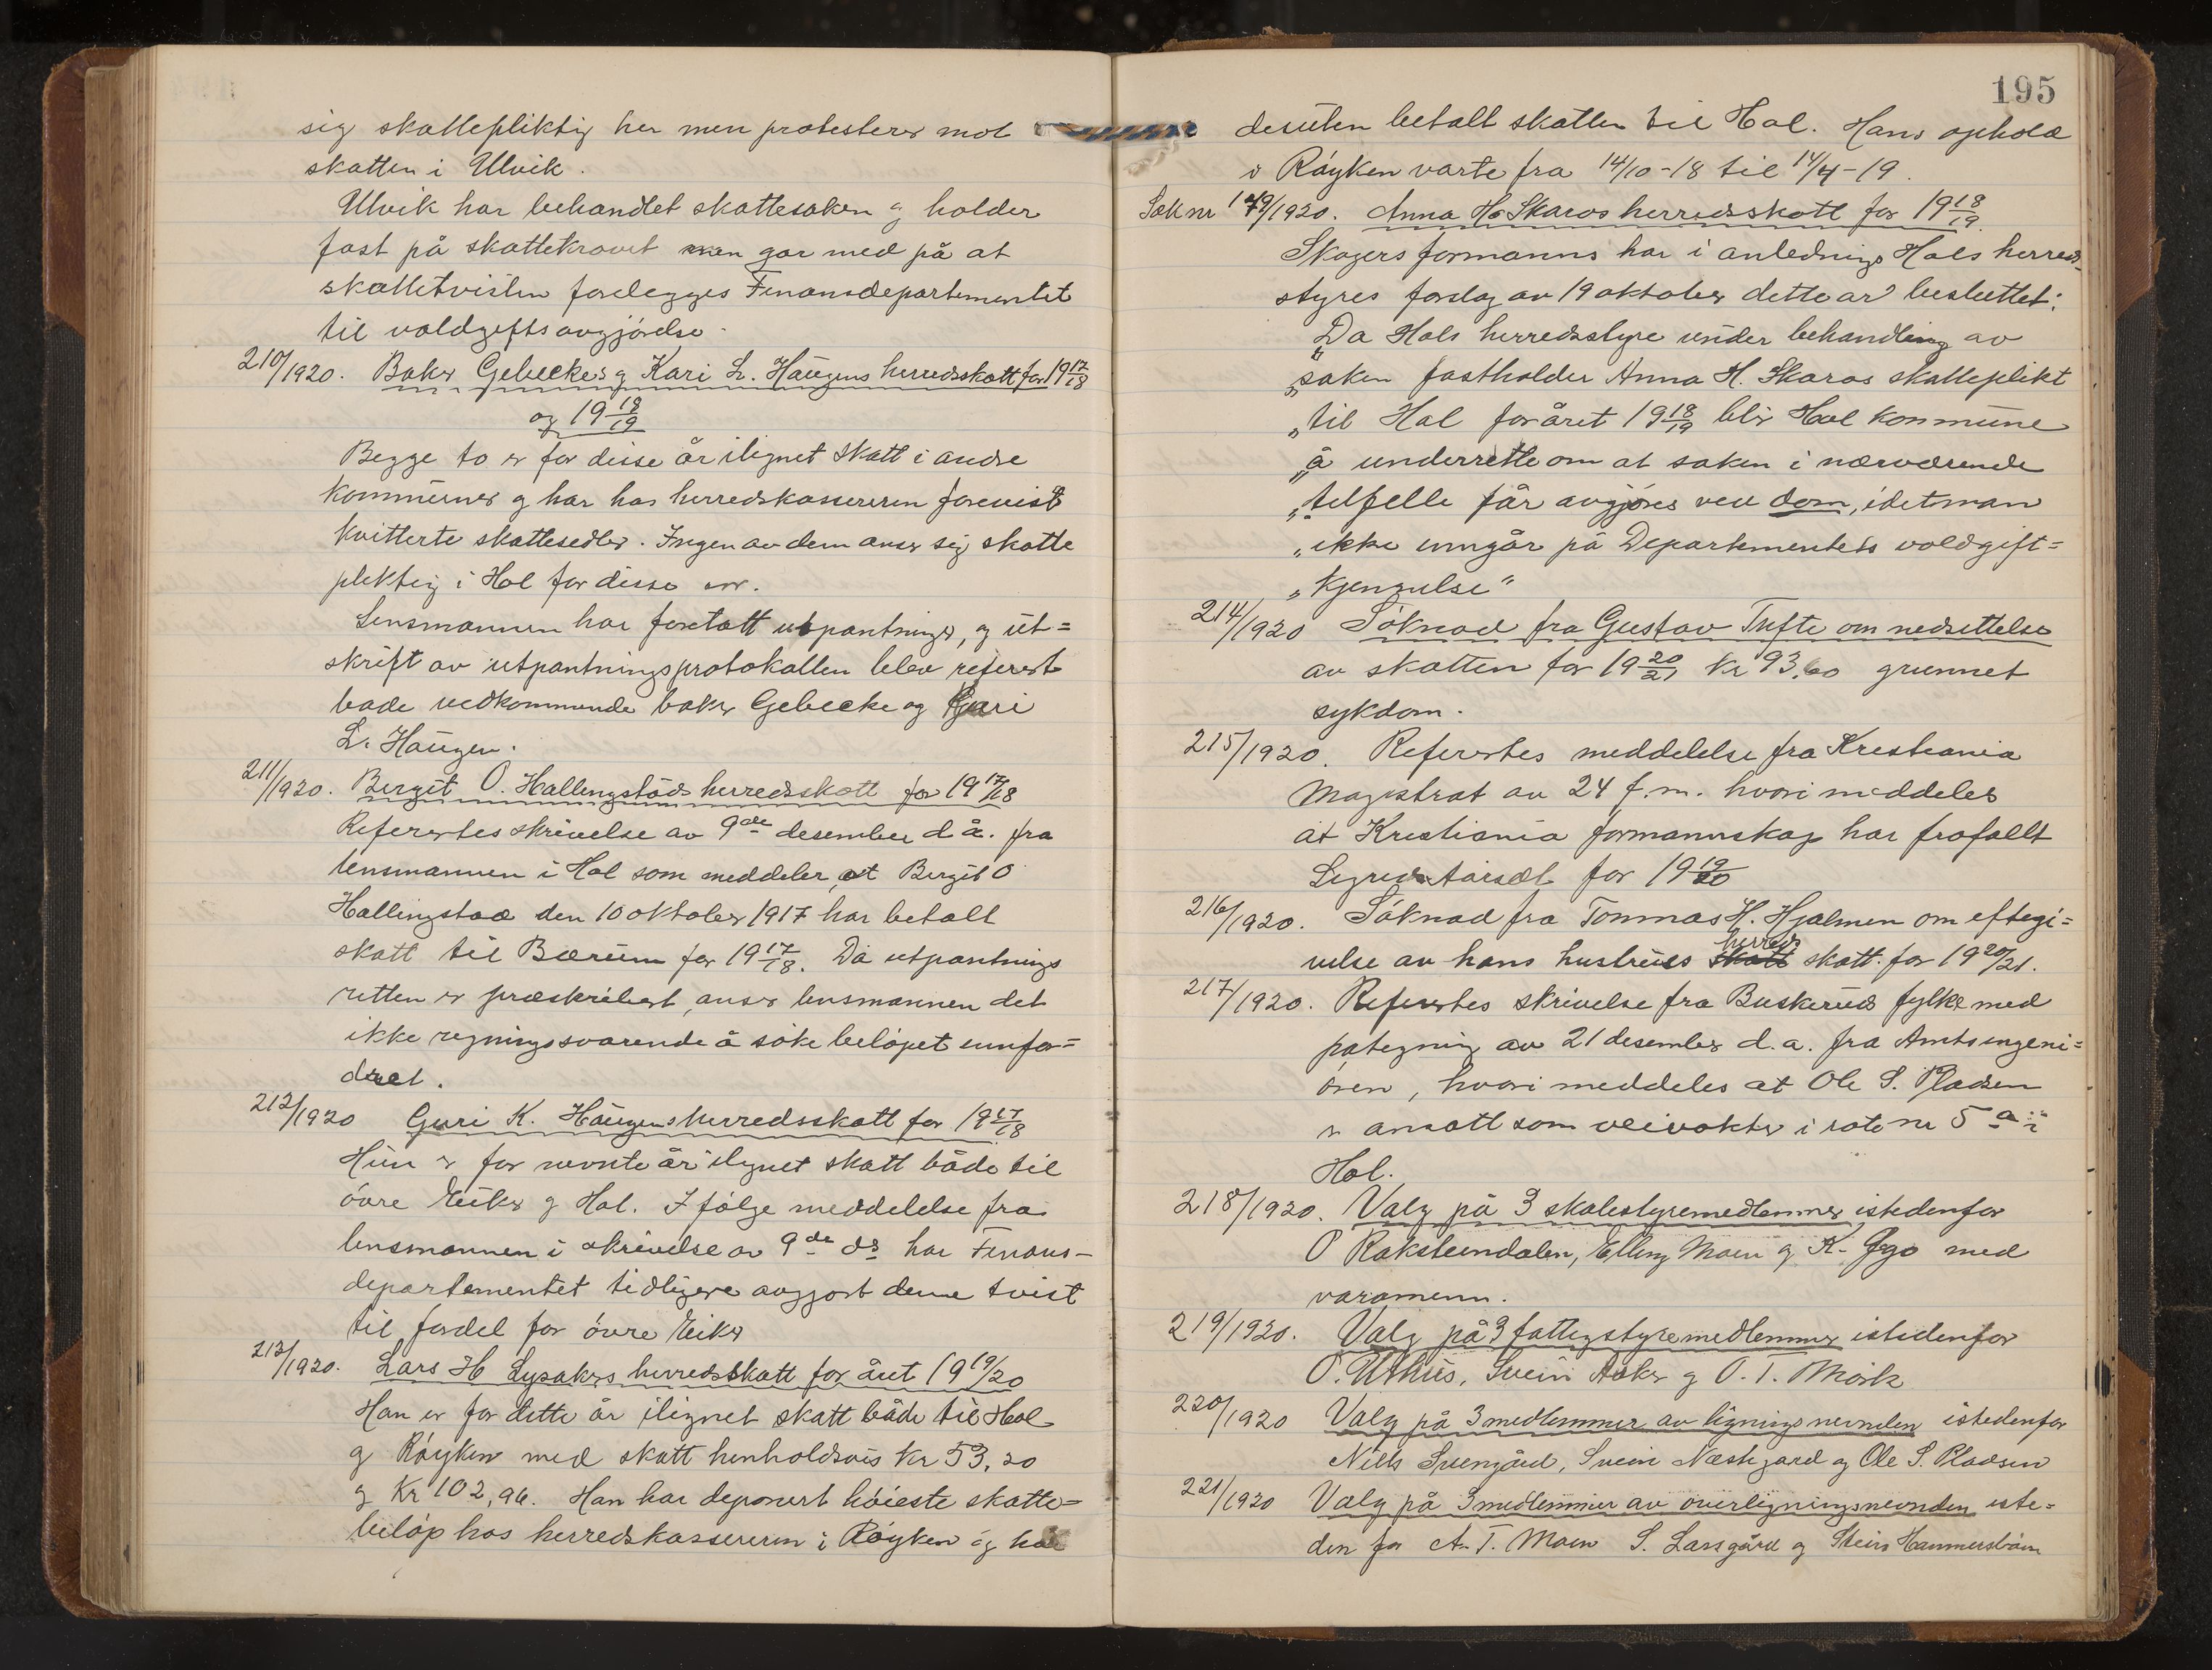 sig skattepliktig her men protesterer mot
skatten i Ulvik.
Ulvik har behandlet skattesaken og holder
fast på skattekravet men gar med på at
skattetvisten forelegges Finansdepartementet
til voldgiftsavgjörelse.
210/1920. Baker Gebeckes og Kari L. Haugens herredsskatt for 19 17/18
og 19 18/19
Begge to er for disse år ilignet skatt i andre
kommuner og har hos herredskassereren forevist
kvitterte skattesedler. Ingen av dem anser sig skatte
pliktig i Hol for disse
Lensmannen har foretatt utpantninger, og ut=
skrift av utpantningsprotokollen blev referert
bade vedkommende baker Gebecke og Kari
L. Haugen.
211/1920. Bergit O. Hallingstads herredsskatt for 19 17/18
Refertes skrivelse av 9de desember d å. fra
lensmannen i Hol som meddeler, at Bergit O
Hallingstad den 10 oktober 1917 har betalt
skatt til Bærum for 19 17/18. Da utpantnings
retten er præskribert, anser lensmannen det
ikke regningssvarende å söke belöpet innfor=
dret.
212/1920 Guri K. Haugens herredsskatt for 19 17/18
Hun er for nevnte år ilignet skatt både til
övre Eiker og Hol. I fölge meddelelse fra
lensmannen i skrivelse av 9de ds har Finans-
departementet tidligere avgjort denne tvist
til fordel for övre Eiker
213/1920. Lars H Lysakers herredsskatt for året 19 19/20
Han er for dette år ilignet skatt både til Hol
og Röyken med skatt henholdsvis kr 53,20
og Kr 102,96. Han har deponert höieste skatte=
belöp hos herredskassereren i Röyken og har
195
desuten betalt skatten til Hol. Hans ophold
i Röyken varte fra 14/10-18 til 14/4-19.
Sak nr 179/1920. Anna H. Skaros herredsskatt for 19 18/19.
Skogers formanns har i anledning Hols herreds-
styres forslag av 19 oktober dette ar besluttet:
„Da Hols herredsstyre under behandling av
„saken fastholder Anna H. Skaros skatteplikt
„til Hol for året 19 18/19 blir Hol kommune
„å underrette om at saken i nærværende
„tilfelle får avgjöres ved dom, idet man
„ikke inngår på Departementets voldgift=
„kjennelse"
214/1920 Söknad fra Gustav Tufte om nedsettelse
av skatten for 19 20/21 kr 93,60 grunnet
sykdom.
215/1920. Refertes meddelelse fra Kristiania
Magistrat av 24 f.m. hvori meddeles
at Kristiania formannskap har frafallt
Sigrid Aarset for 19 19/20
216/1920. Söknad fra Tommas H. Hjalmen om eftegi=
velse av hans hustrues skatt herreds skatt. for 19 20/21.
217/1920. Refertes skrivelse fra Buskerud fylke med
pategning av 21 desember d.a. fra Amtsingeni=
ören, hvori meddeles at Ole S. Pladsen
er ansatt som veivokter i rote nr 5 a i
Hol.
218/1920. Valg på 3 skolestyremedlemmer istedenfor
O Raksteendalen, Elling Moen og K. Ygo med
varamenn.
219/1920. Valg på 3 fattigstyremedlemmer istedenfor
O. Uthus, Svein Aaker og O. T. Mörk
220/1920 Valg på 3 medlemmer av ligningsnevnden istedenfor
Nills Svengård, Svein Næstegard og Ole S. Pladsen
221/1920 Valg på 3 medlemmer av overligningsnevnden iste=
den for A. T. Moen S. Larsgård og Stein Hammersböen